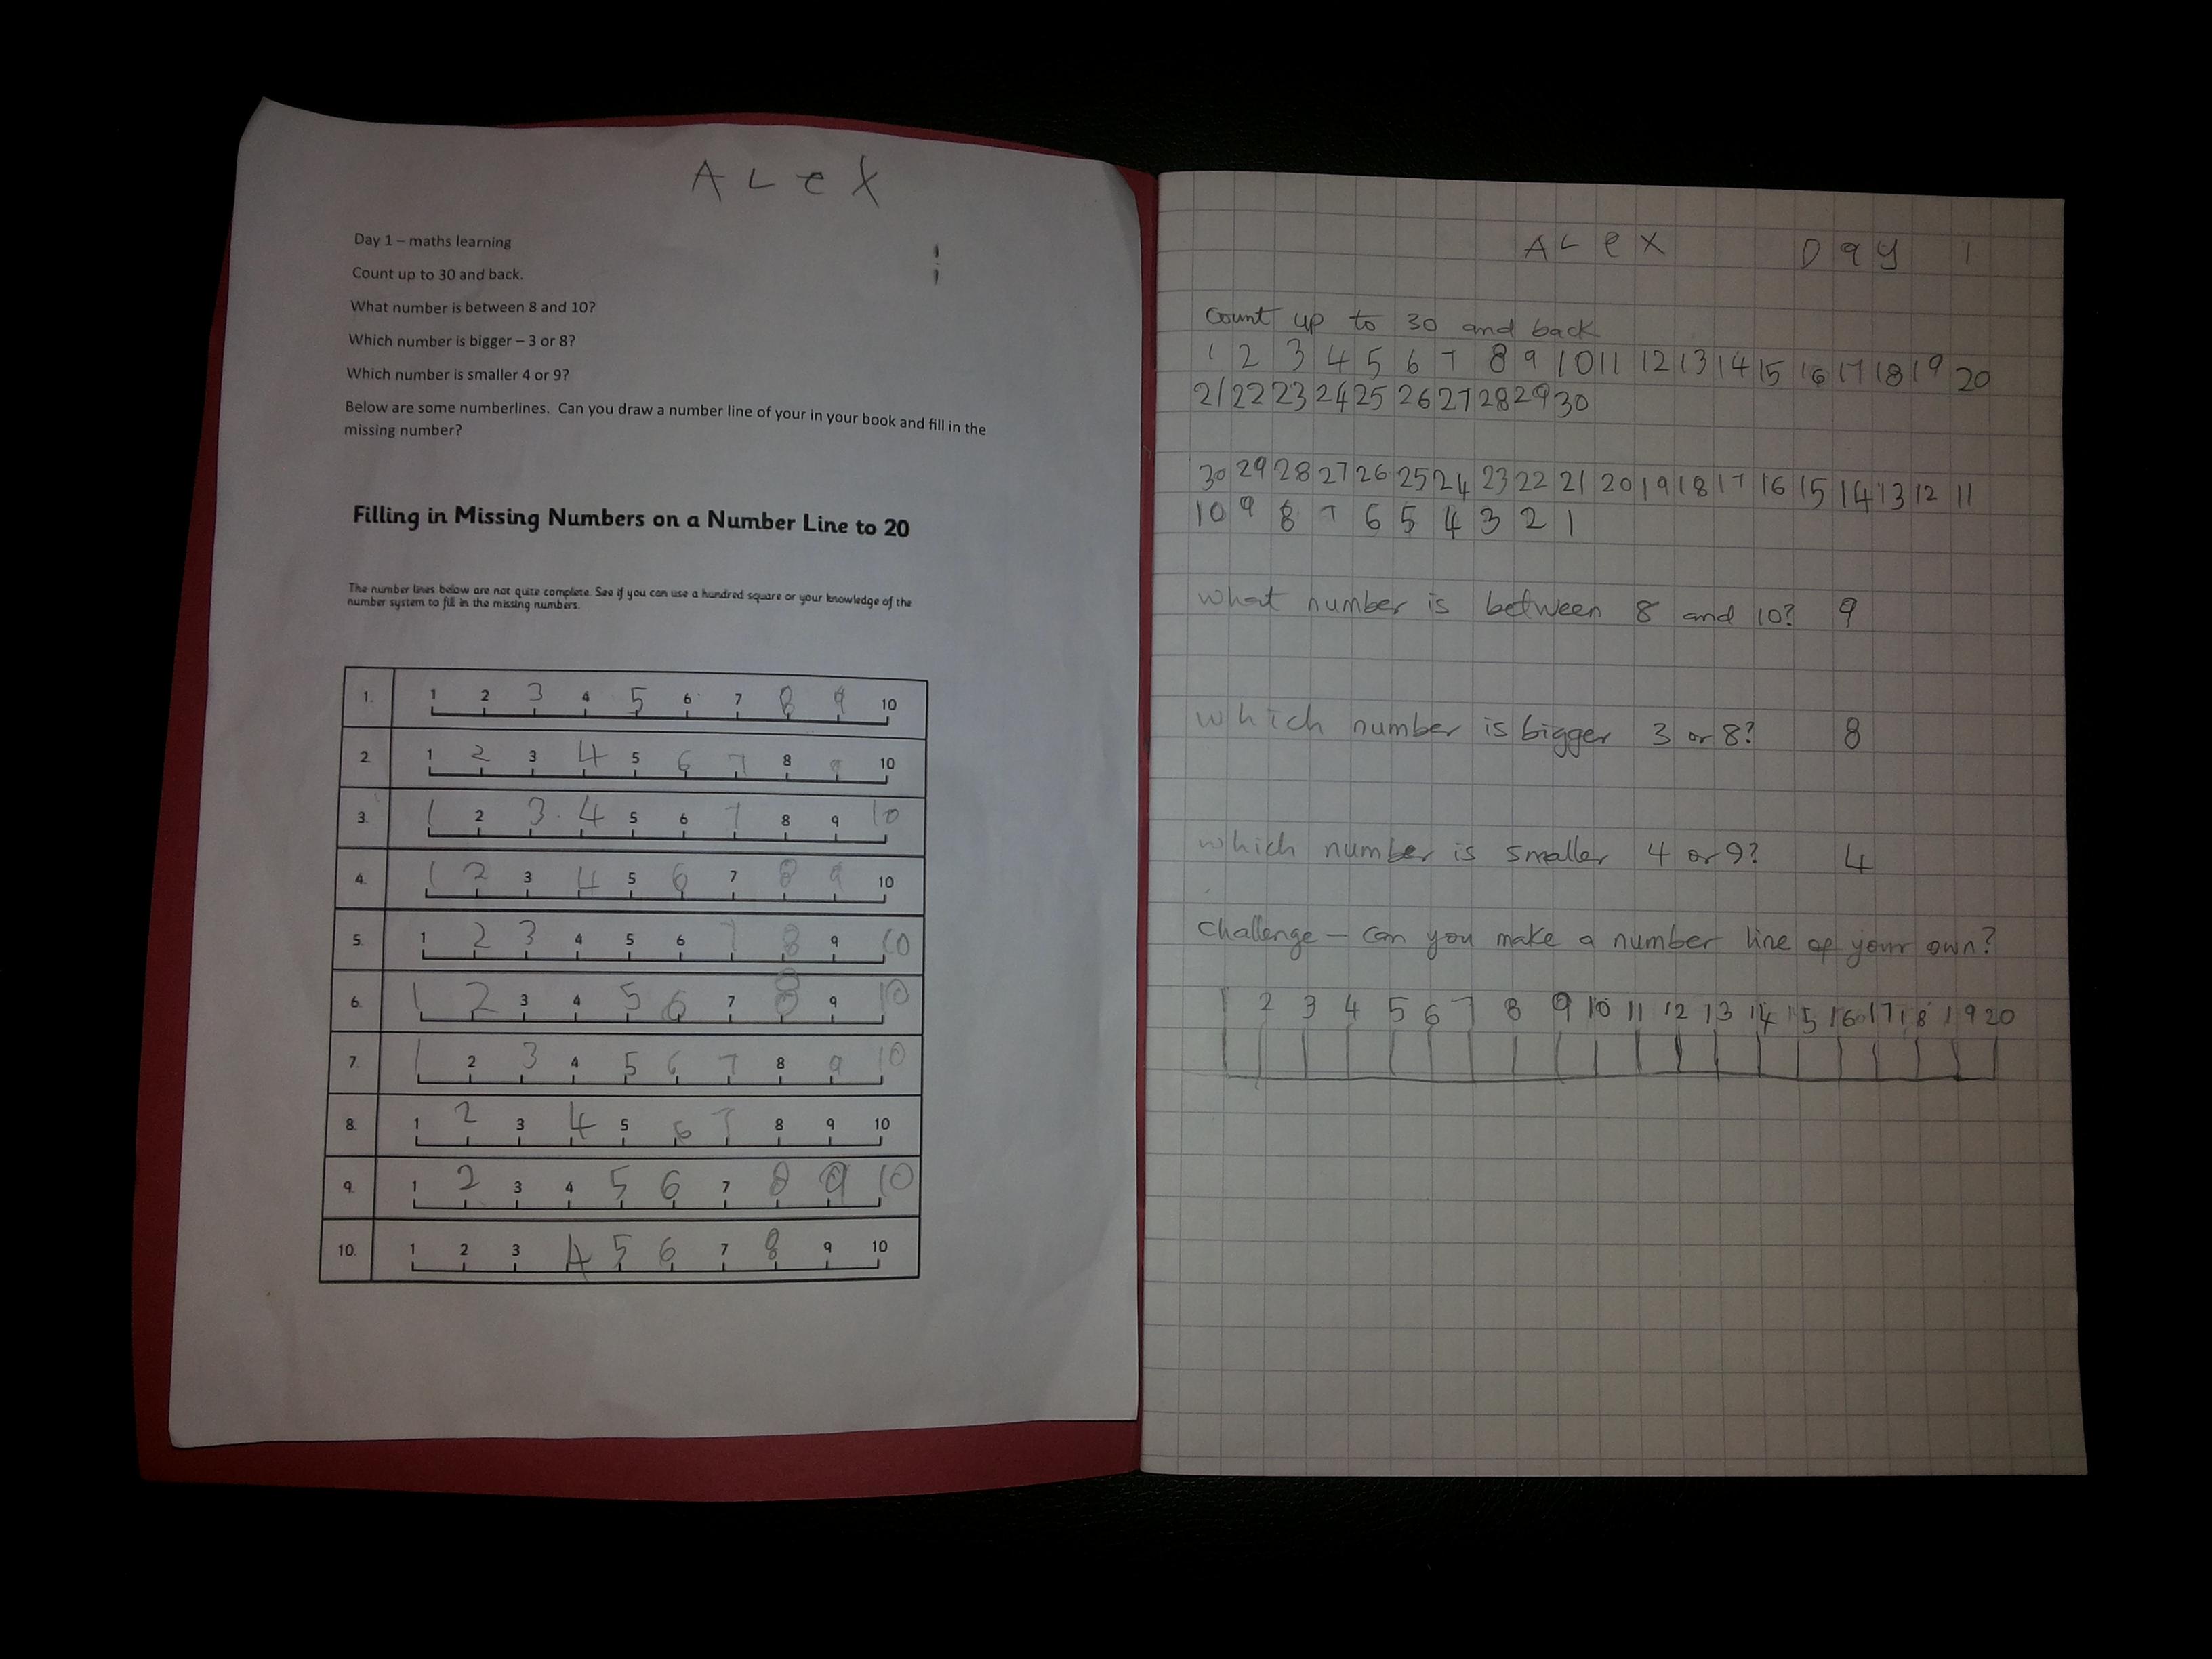 ALeX
Day 1 – maths learning
Count up to 30 and back.
What number is between 8 and 10?
Which number is bigger – 3 or 8?
Which number is smaller 4 or 9?
Below are some numberlines. Can you draw a number line of your in your book and fill in the
missing number?
Filling in Missing Numbers on a Number Line to 20
The number lines below are not quite complete. See if you can use a hundred square or your knowledge of the
number system to fill in the missing numbers.
1. 1 2 3 4 5 6 7 8 9 10
2. 1 2 3 4 5 6 7 8 9 10
3. 1 2 3 4 5 6 7 8 9 10
4. 1 2 3 4 5 6 7 8 9 10
5. 1 2 3 4 5 6 7 8 9 10
6. 1 2 3 4 5 6 7 8 9 10
7. 1 2 3 4 5 6 7 8 9 10
8. 1 2 3 4 5 6 7 8 9 10
9. 1 2 3 4 5 6 7 8 9 10
10. 1 2 3 4 5 6 7 8 9 10
ALeX Day 1
Count up to 30 and back
1 2 3 4 5 6 7 8 9 10 11 12 13 14 15 16 17 18 19 20
21 22 23 24 25 26 27 28 29 30
30 29 28 27 26 25 24 23 22 21 20 19 18 17 16 15 14 13 12 11
10 9 8 7 6 5 4 3 2 1
What number is between 8 and 10? 9
Which number is bigger 3 or 8? 8
Which number is smaller 4 or 9? 4
Challenge – can you make a number line of your own?
1 2 3 4 5 6 7 8 9 10 11 12 13 14 15 16 17 18 19 20